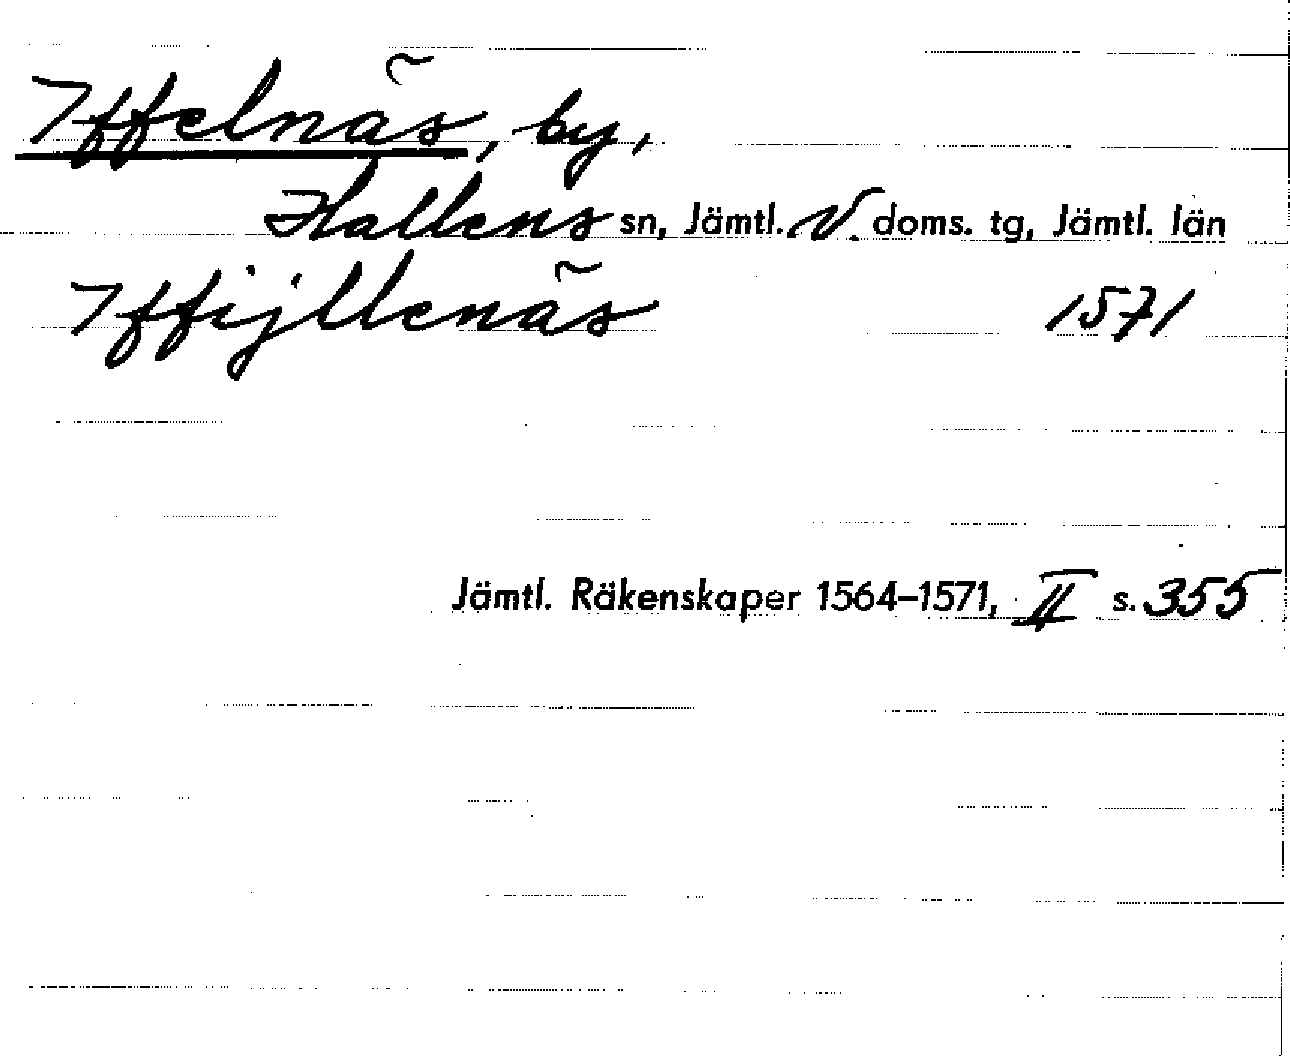 Yffelnäs, by,
Hallens sn, Jämtl. V. doms. tg, Jämtl. län
Yffijllenäs 1571
Jämtl. Räkenskaper 1564–1571, II s. 355